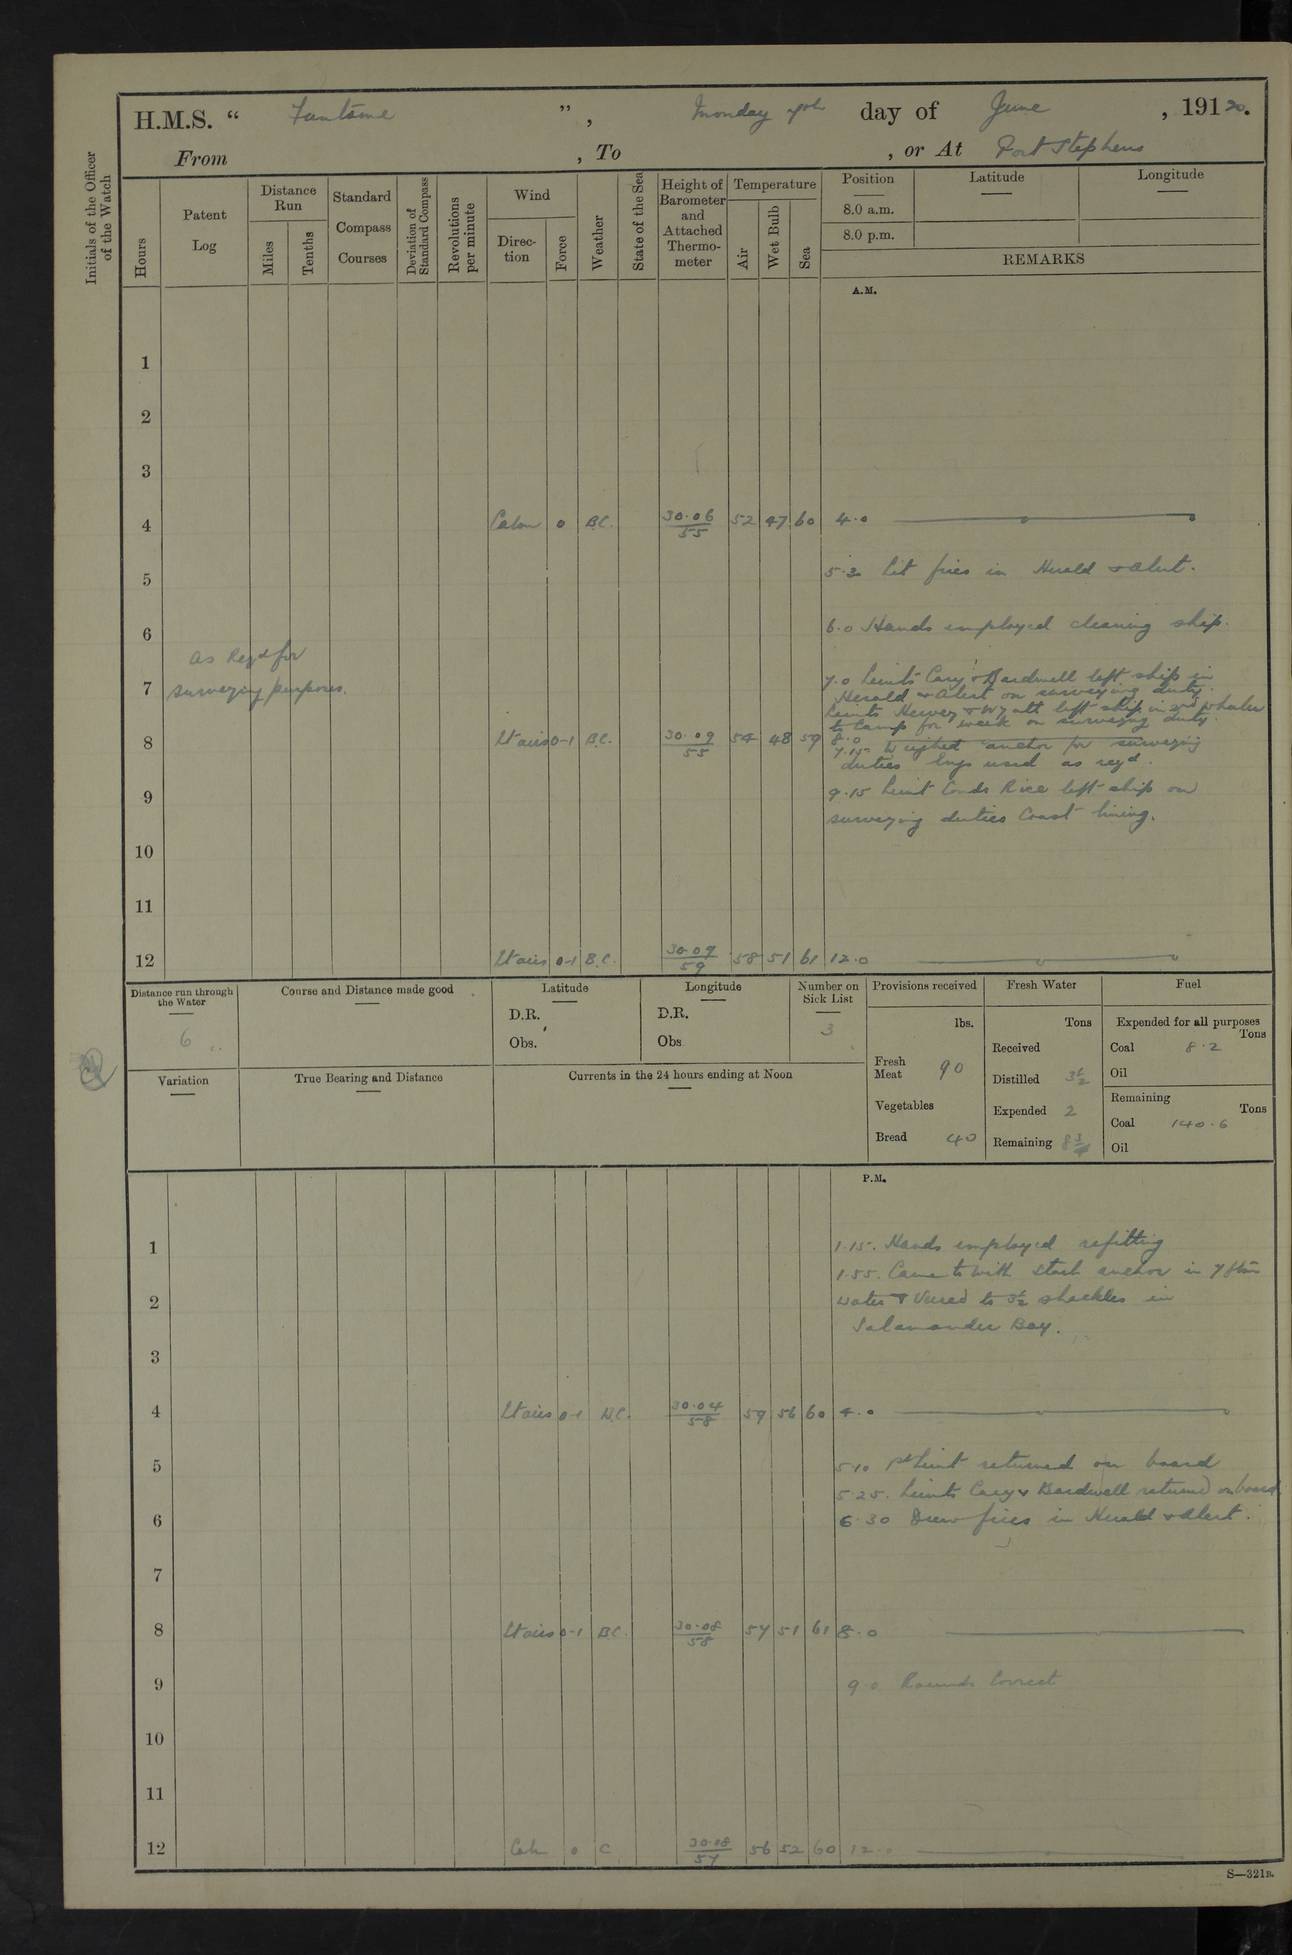 H.M.S. “ Fantome ”, Monday 7th day of June, 19120.
From , To , or At Port Stephens
Initials of the Officer of the Watch
Hours
Patent Log
Distance Run
Miles
Tenths
Standard Compass Courses
Deviation of Standard Compass
Revolutions per minute
Wind
Direc-tion
Force
Weather
State of the Sea
Height of Barometer and Attached Thermo-meter
Temperature
Air
Wet Bulb
Sea
Position
8.0 a.m.
8.0 p.m.
Latitude
Longitude
REMARKS
A.M.
1
2
3
4 Calm 0 B.C. 30.06 55 52 47 60 4.0
5 5.30 Lit fires in Herald & Alert.
6 6.0 Hands employed cleaning ship.
as Reqd for
7 surveying purposes.
7.0 Lieuts Cary & Bardwell left ship in
Herald & Alert on surveying duty.
Lieuts Hervey & Wyatt left ship in 2nd whaler
to camp for week on surveying duty.
8 Lt airs 0-1 B.C. 30.09 55 54 48 59 8.0
7.15 Weighed anchor for surveying
duties lugs used as reqd.
9 9.15 Lieut Comdr Rice left ship on
surveying duties Coast lining.
10
11
12 Lt airs 0-1 B.C. 30.09 59 58 51 61 12.0
Distance run through the Water
6
Course and Distance made good
Latitude
D.R.
Obs.
Longitude
D.R.
Obs.
Number on Sick List
3
Provisions received
lbs.
Fresh Meat 90
Vegetables
Bread 40
Fresh Water
Tons
Received
Distilled 3½
Expended 2
Remaining 8¾
Fuel
Expended for all purposes
Tons
Coal 8.2
Oil
Remaining
Tons
Coal 140.6
Oil
Variation
True Bearing and Distance
Currents in the 24 hours ending at Noon
P.M.
1 1.15. Hands employed refitting
1.55. Came to with starb anchor in 7 fthm
2 water & veered to 3½ shackles in
Salamander Bay.
3
4 Lt airs 0-1 B.C. 30.04 58 59 56 60 4.0
5 5.10 1st Lieut returned on board
5.25. Lieuts Cary & Bardwell returned on board
6 6.30 Drew fires in Herald & Alert.
7
8 Lt airs 0-1 B.C. 30.08 58 57 51 61 8.0
9 9.0 Rounds Correct
10
11
12 Calm 0 C 30.08 57 56 52 60 12.0
S—321B.